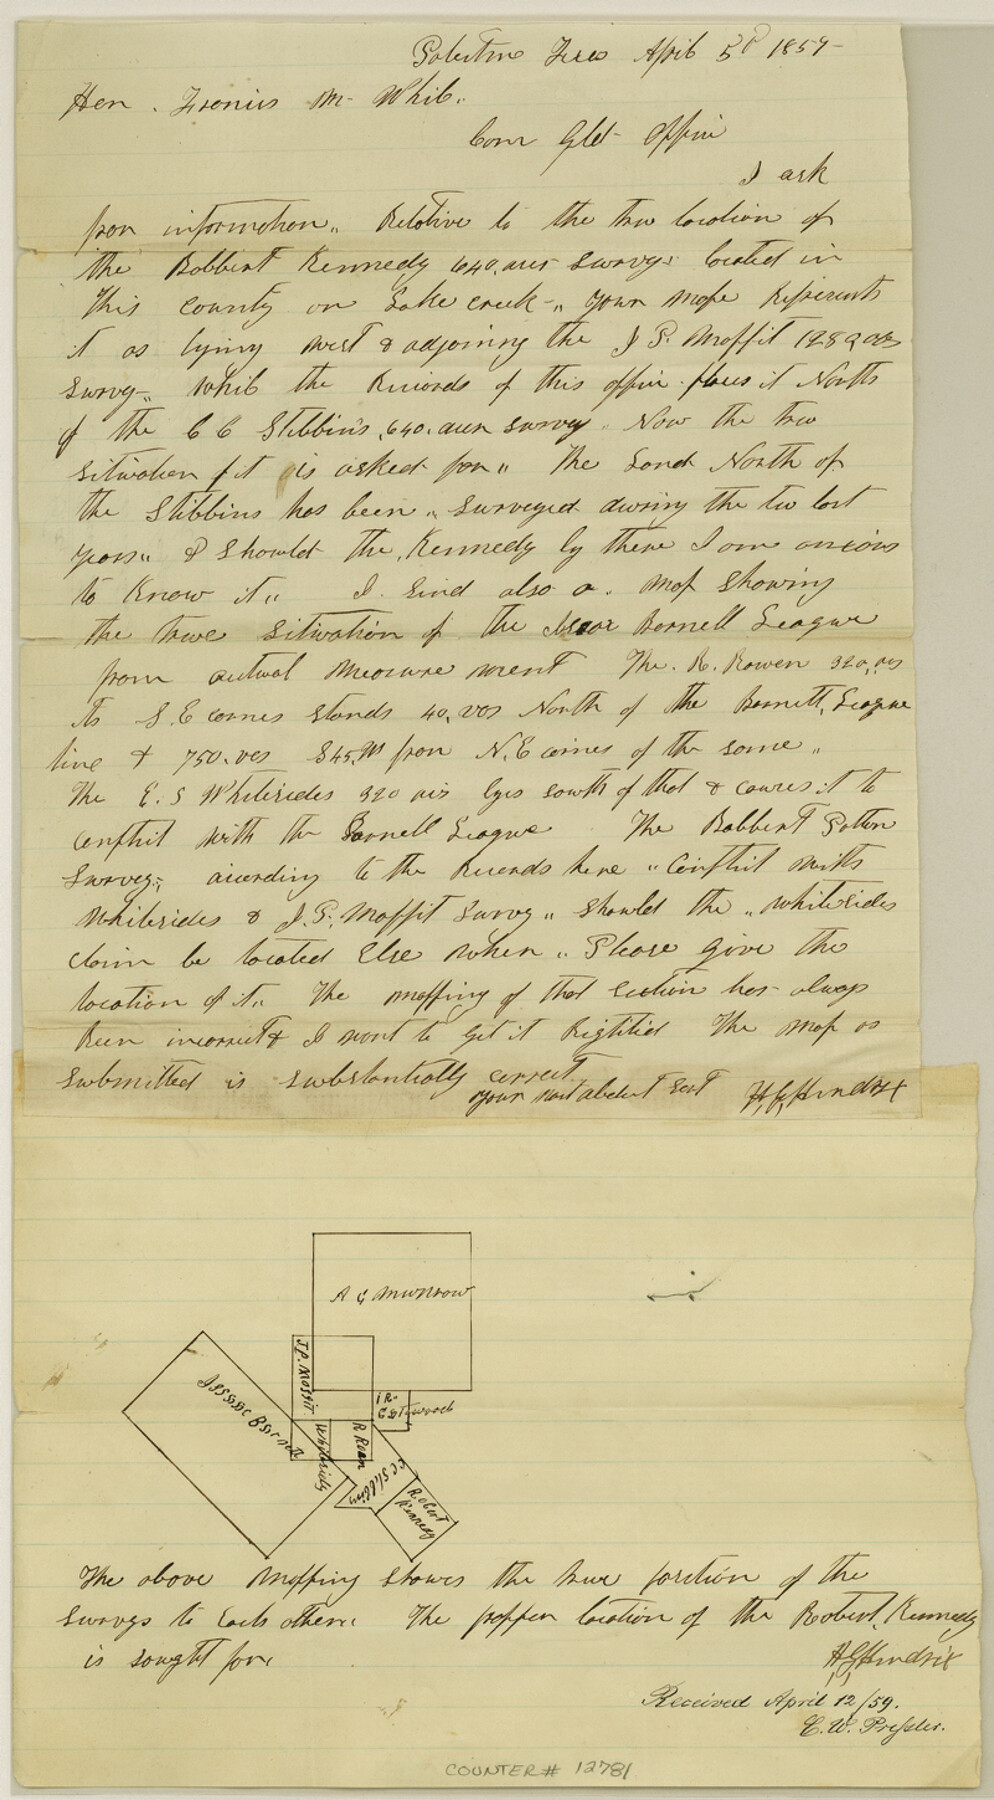 Palestine Texas April 5th 1859
Hon. Francis M. White.
Com Gld. Office
I ask
for information. Relative to the true location of
the Robbert Kennedy 640. acres Survey located in
This county on Lake creek. your map Represents
it as lying west & adjoining the J P. Moffit 1280 acs
Survey. While the Records of this office places it North
of the C C Stibbins. 640. acre survey. Now the true
situation of it is asked for. The Land North of
the Stibbins has been surveyed during the two last
years. & should the Kennedy ly there I am anxious
to know it. I. send also a map showing
the true situation of the Isaac Barnell League
from actual Measurement The. R. Rowen 320. acs
its S. E cornes stands 40. vas North of the Barnett, League
line & 750. vas S45.W from N. E cornes of the same.
The E. S Whitesides 320 acs lyes south of that & causes it to
conflict with the Barnell League The Robbert Patton
Survey. according to the Records here conflict with
Whitesides & J. P. Moffit Survey. should the Whitesides
claim be located Else where. Please give the
location of it. The mapping of that section has always
Been incorrect & I want to get it Rightied The map as
submitted is substantially correct
your most Obedent Sevt H, G, Hendrix
A G Munrow
J.P. Moffit
I R.
Eastwood
Isaac Barnett
Whitesides
R Roen
C C Stibbins
Robert
Kennedy
The above mapping showes the true position of the
Surveys to Each other. The proper location of the Robert, Kennedy
is sought for.
H G Hendrix
Received April 12/59.
C. W. Pressler.
COUNTER# 12781